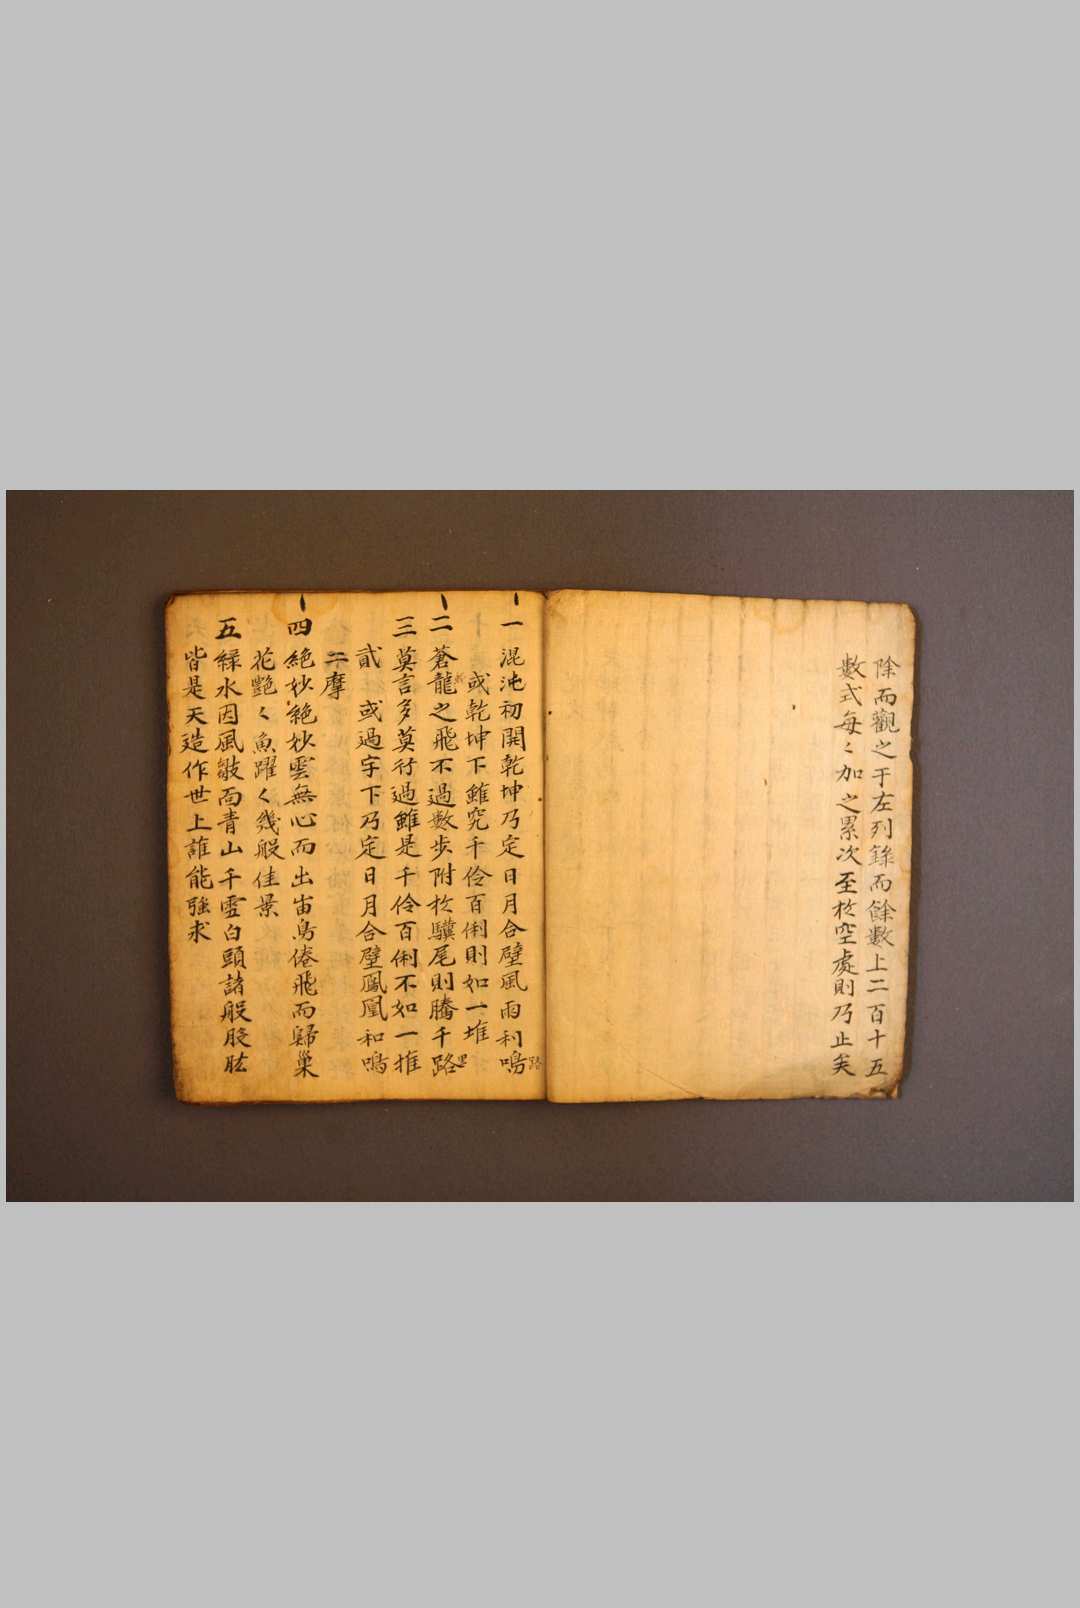 除而觀之于左列錄而餘數上二百十五
數式每〻加之累次至於空處則乃止矣
一 混沌初開乾坤乃定日月合璧風雨利鳴
路
或乾坤下雖究千伶百俐則如一堆
二 蒼龍之飛不過數步附於驥尾則騰千路
里
三 莫言多莫行過雖是千伶百俐不如一推
貳 或過字下乃定日月合璧鳳凰和鳴
二摩
四 絶妙絶妙雲無心而出宙鳥倦飛而歸巢
花艷〻魚躍〻幾般佳景
五 緑水因風皺面青山千雪白頭諸般
皆是天造作世上誰能強求